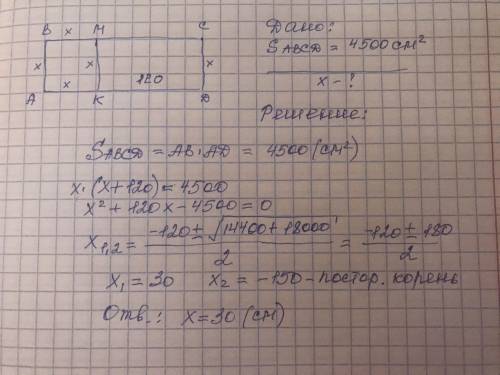 B x M C
x x x
x 120
A K D
Дано:
S ABCD = 4500 см²
x - ?
Решение:
S ABCD = AB · AD = 4500 (см²)
x · (x + 120) = 4500
x² + 120x - 4500 = 0
x₁,₂ = (-120 ± √(14400 + 18000)) / 2 = (-120 ± 180) / 2
x₁ = 30 x₂ = -150 - постор. корень
Отв.: x = 30 (см)